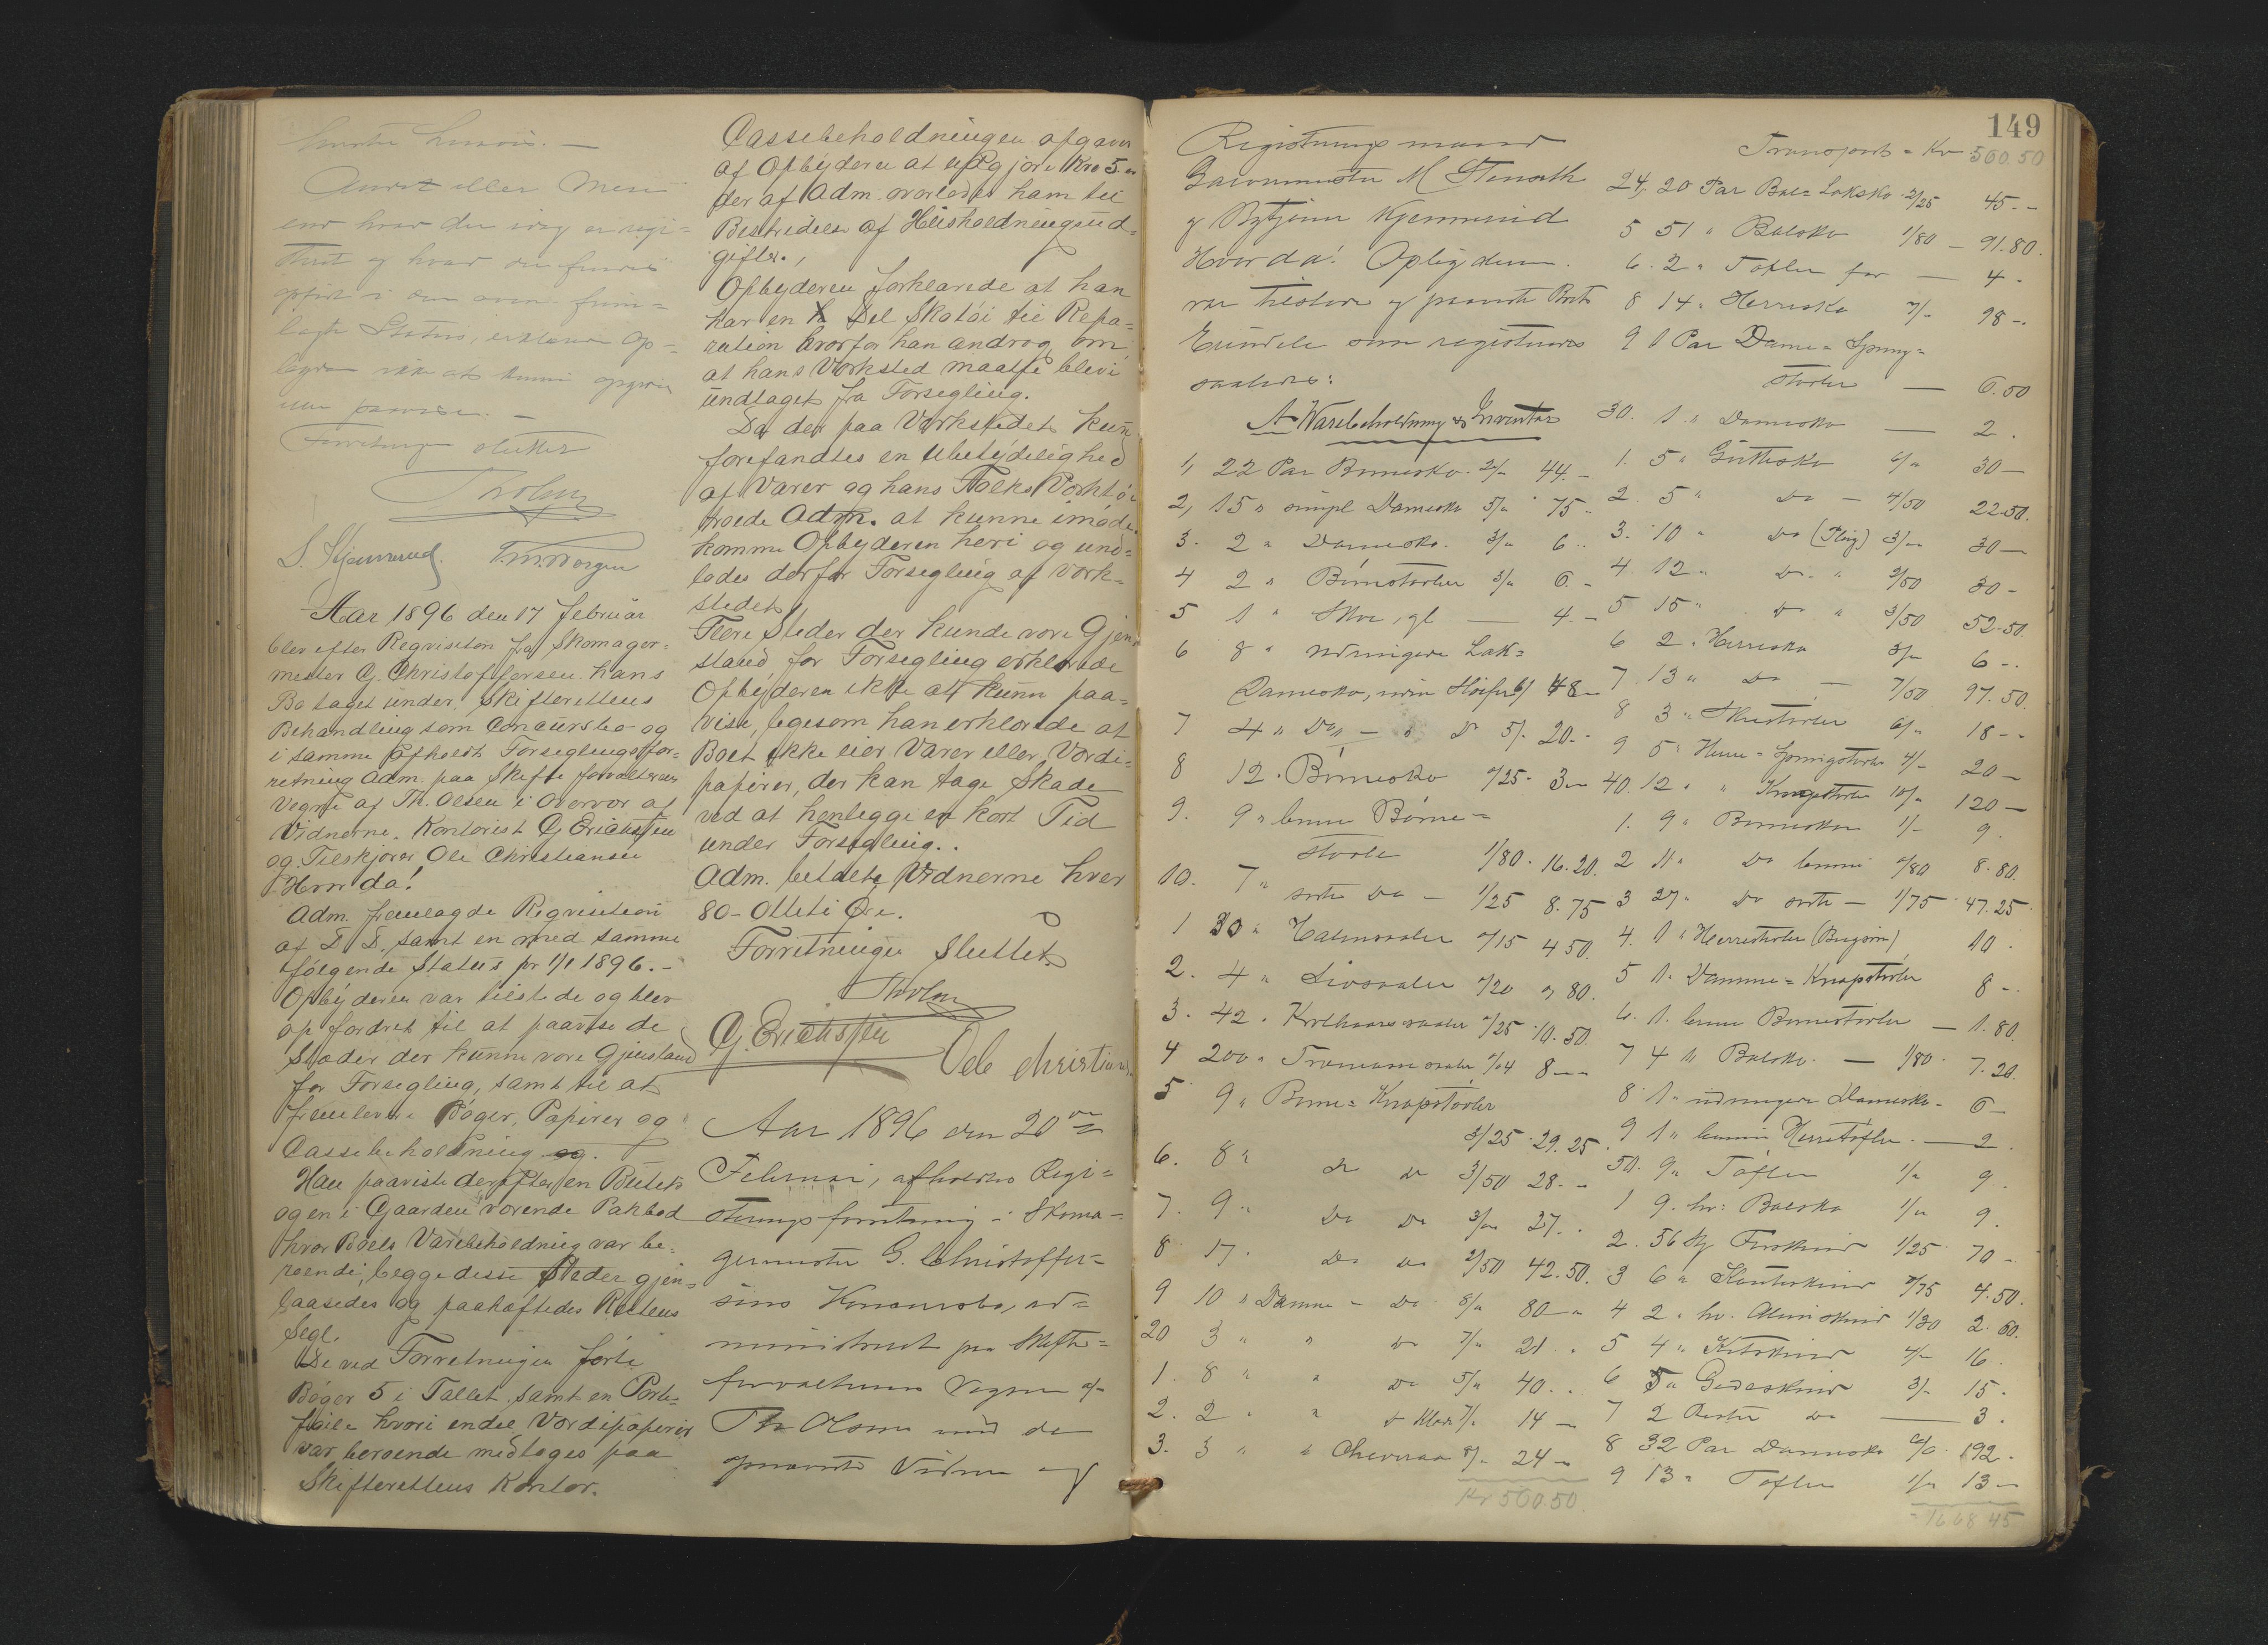 Andet eller Mere
end hvad der
og hvad
Status, erklærer Op-
byderen ikke at kunne opgive
eller paavise. -
Forretningen sluttet
ThOlsen
Aar 1896 den 17 Februar
blev efter Reqvisition fra Skomager-
mester G. Christoffersen hans
Bo taget under Skifterettens
Behandling som Concursbo og
i samme afholdt Forseglingsfor-
retning Adm. paa Skifteforvalterens
Vegne af Th. Olsen i Overvær af
Vidnerne. Kontorist G Erichssen
og Fileskjærer Ole Christiansen
Hvorda!
Adm. fremlagde Reqvisition
af D. D. samt en med samme
følgende Status pr 1/1 1896. -
Opbyderen var tilstede og blev
opfordret til at paavise de
Stæder der kunne være Gjenstand
for Forsegling, samt til at
fremlevere Bøger, Papirer og
Cassebeholdning og.
Han paaviste derefter en Butik
og en i Gaarden værende Pakbod
hvor Boets Varebeholdning var be-
roende, begge disse Stæder gjen-
laasedes og paahæftedes Rettens
Segl.
De ved Forretningen førte
Bøger 5 i Tallet, samt en Porte-
føile hvori endel Værdipapirer
var beroende medtoges paa
Skifterettens Kontor.
Cassebeholdningen opgaves
af Opbyderen at udgjøre Kro 5.
der af Adm. overlodes ham til
Bestridelse af Husholdningsud-
gifter.
Opbyderen forklarede at han
har en Del Skotøi til Repa-
ration hvorfor han androg om
at hans Værksted maatte blive
undtaget fra Forsegling.
Da der paa Værkstedet kun
forefandtes en Ubetydelighed
af Varer og hans Folks Værktøi
troede Adm. at kunne imøde-
komme Opbyderen heri og und-
lodes derfor Forsegling af Værk-
stedet
Flere Steder der kunde være Gjen-
stand for Forsegling erklærede
Opbyderen ikke at kunne paa-
vise, ligesom han erklærede at
Boet ikke eier Varer eller Værdi-
papirer, der kan tage Skade
ved at henlegge en kort Tid
under Forsegling..
Adm. betalte Vidnerne hver
80 - Otteti Øre.
Forretningen Sluttet.
ThOlsen
G. Erichssen
Ole Christiansen
Aar 1896 den 20de
Februar, afholdtes Regi-
streringsforretning i Skoma-
germester G. Christoffer-
sens Konkursbo, ad-
ministreret paa Skifte-
forvalterens Vegne af
Th Olsen med de
opnævnte Vidner og
149
Registreringsmænd
Garvermester M
og Bytjener Kjennerud
Hvorda! Opbyderen
var tilstede og paaviste Boets
Eiendele som registreredes
saaledes:
A Varebeholdning & Inventar
1, 22 Par Børnesko 2/" 44. -
2, 15 " simpl Damesko 5/" 75 -
3. 2 " Damesko. 3/" 6 -
4 2 " Børnestøvler 3/" 6 -
5 1 " Skoe, gl — 4. -
6 8 " udringede Lak-
Damesko, 6/ 48 -
7 4 " Do - " Do 5/- 20. -
8 12 " Børnesko "/25 - 3 -
9. 9 " brune Børne-
støvle 1/80 - 16.20.
10. 7 " sorte Do - 1/25 8.75
1 30 " Halmsaaler "/15 4 50
2. 4 " "/20 " 80.
3. 42 " "/25 10.50.
4 200 " "/04 8 —
5 9 " Børne-Knapstøvler
3/25 29.25.
6. 8 " Do Do 3/50 28 - -
7. 9 " Do Do 3/" 27. -
8 17 " Do Do 2/50 42.50.
9 10 " Dame - Do 8/" 80 -
20 3 " " Do 7/" 21 -
1. 8 " " Do 5/" 40. -
2. 2 " " Do Klæde 7/" 14 -
3. 3 " " Chevreau 8/- 24 -
Kr 560.50.
Transport = Kr 560.50
24, 20 Par Bal-Laksko 2/25 45. -
5 51 " Balsko 1/80 - 91.80.
6. 2 " Tøfler for — 4 -
8 14 " Herresko 7/- 98 -.
9 1 Par Dame-Spring-
støvler — 6.50
30. 1 " Damesko — 2.
1. 5 " Guttesko 6/" 30 —
2. 5 " Do - 4/50 22.50.
3. 10 " Do (Pløg) 3/" 30 —
4. 12 " Do " 2/50 30 -
5 15 " Do " 3/50 52.50.
6 2 " Herresko 3/" 6 -.
7. 13 " Do — 7/50 97.50.
8 3 " 6/" 18 - -
9 5 " Herre-Springstøvler 4/- 20 —
40. 12 " " Knapstøvler 10/" 120 —
1. 9 " Børnesko 1/- 9.
2 11 " Do brune "/80 8.80.
3 27 " Do sorte - 1/75 47.25
4. 1 " Herrestøvler 10.
5 1. Damme-Knapstøvler 8 -.
6. 1. brune Børnestøvler — 1.80.
7 4 " Balsko. — 1/80 7.20.
8 1 " udringede Damesko - 6 —
9 1 " brune Herretøfler. — 2
50. 9 " Tøfler 1/" 9.
1 9. hv: Balsko 1/" 9.
2. 56 Faarskind 1/25 70 -
3 6 " "/75 4.50.
4 2 " hv. 1/30 2.60.
5 4 " Kidskind 4/- 16.
6 5 " Gedeskind 3/- 15 -
7 2 Rester Do — 3.
8 32 Par Damesko 6/" 192.
9 13 " Tøfler 1/" 13 —
1668 45